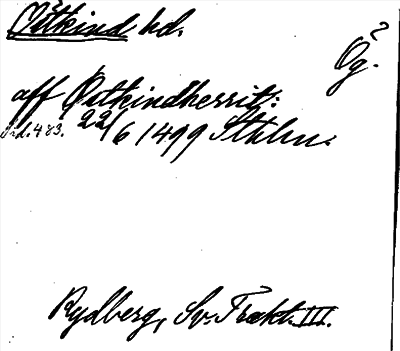 Östkind hd.
Ög.
aff Østkindherrit:
sid. 483. 22/6 1499 Sthlm.
Rydberg, Sv. Trakt. III.